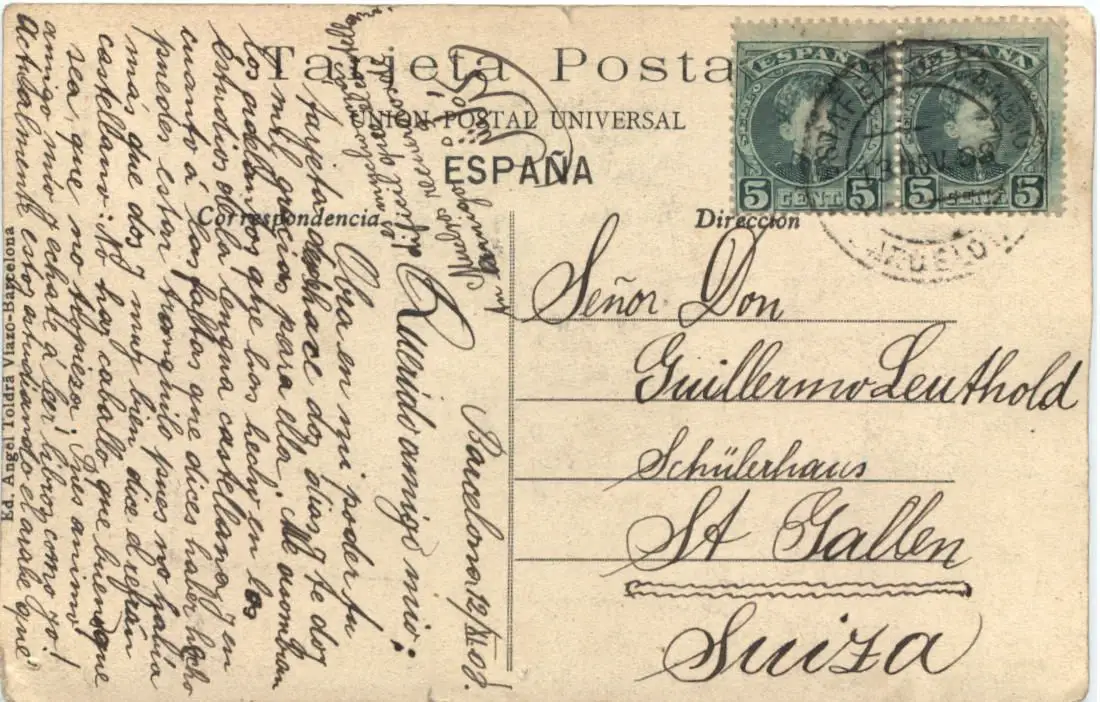 Tarjeta Posta
UNIÓN POSTAL UNIVERSAL
ESPAÑA
Correspondencia
Dirección
ESPAÑA ESPAÑA
5 CENT 5 5 CENT 5
13 NOV 08
Señor Don
Guillermo Leuthold
Schülerhaus
St Gallen
Suiza
Barcelona 12/XI.08.
Querido amigo mio:
Obra en mi poder tu
tarjeta deshace dos dias y te doy
mil gracias para ella. Me asombran
los adelantos que has hecho en los
estudios de la lengua castellana y en
cuanto á las faltas que dices haber hecho
puedes estar tranquilo pues no había
más que dos y muy bien dice el refrán
castellano: No hay caballo que buen que
sea, que no tropieza. Pues animo
amigo mio y echate á leer libros, como yo!
Actualmente estoy estudiando el arabe que
Ed. Angel Toldrá Viazo-Barcelona